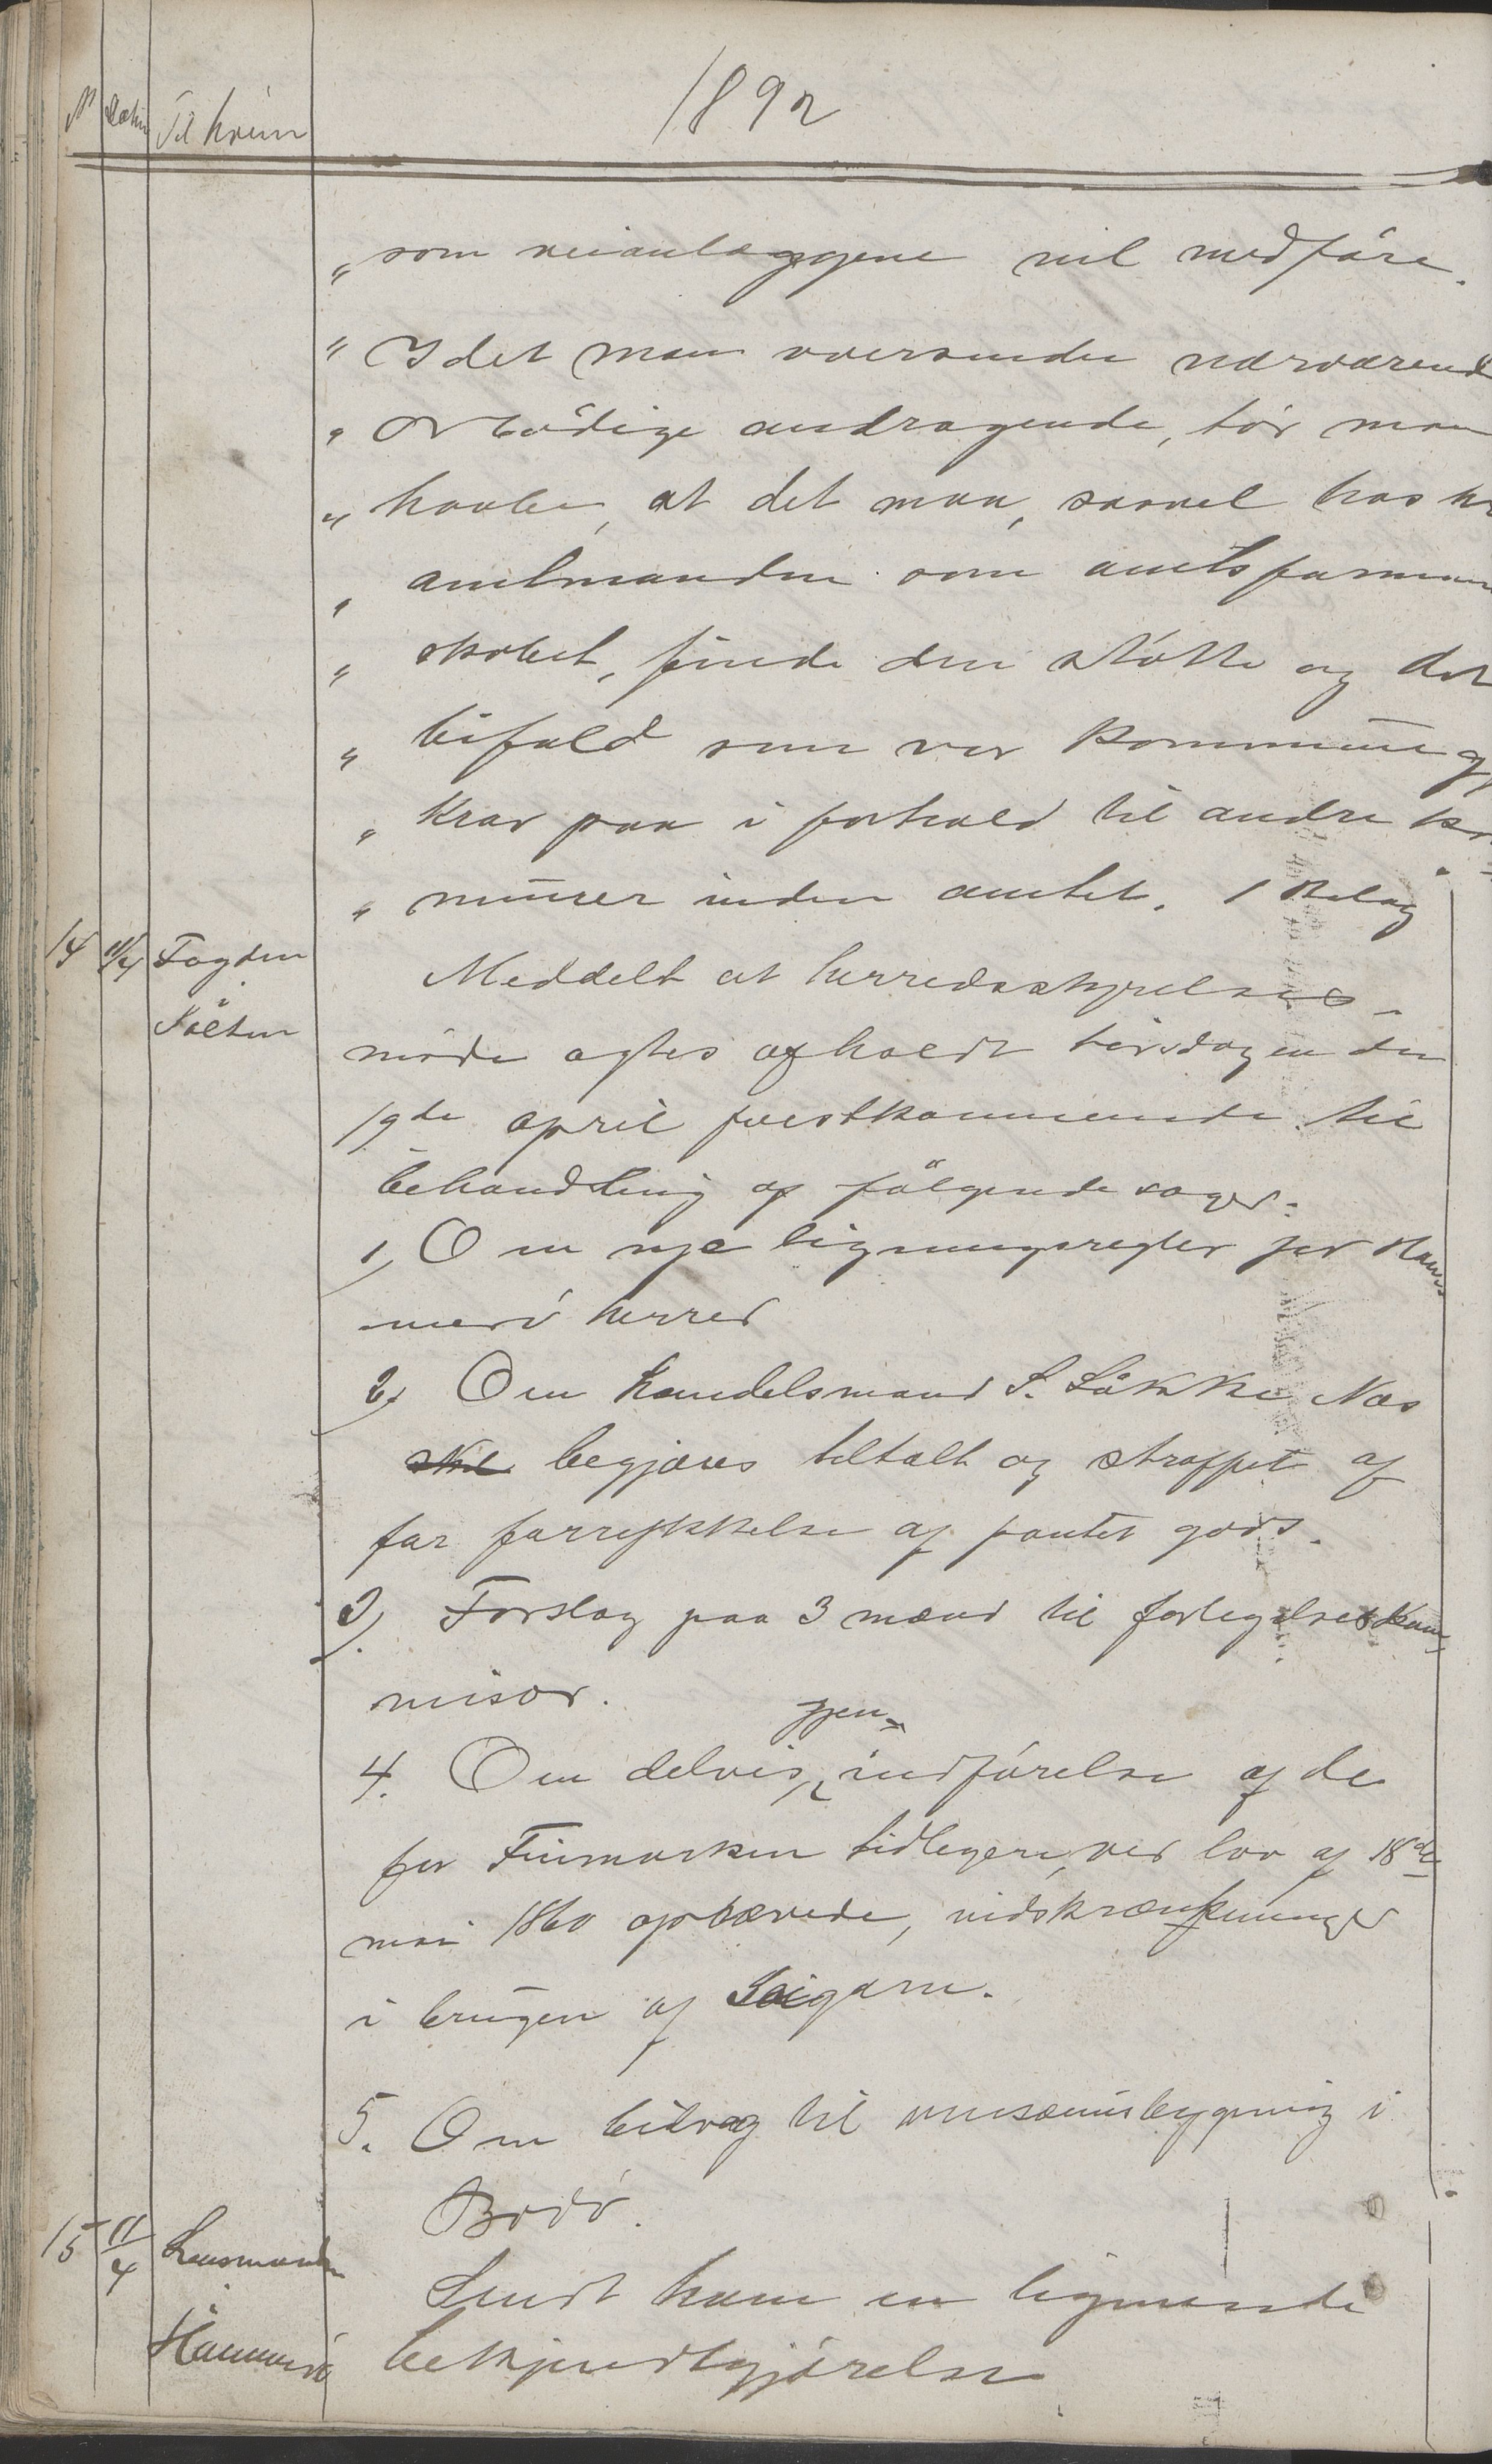 1892
N Datum Til hvem
„ som veianlæggene vil medføre.
„ Idet man oversender nærværende
„ ærbødige andragende, tør man
„ haabe, at det maa, saavel hos hr
„ amtmanden som amtsforman
„ skabet, finde den støtte og det
„ bifald som vor kommune gjør
„ krav paa i forhold til andre kom
„ muner inden amtet. 1 Bilag
14 11/4 Fogden Meddelt at herredsstyrelses-
Salten møde agtes afholdt tirsdagen den
19de april førstkommende til
behandling af følgende sager:
1, Om nye ligningsregler for Ham
merø herred
2, Om handelsmand S. Løkke Næs
skal begjæres tiltalt og straffet af
for forrykkelse af pantet gods.
3, Forslag paa 3 mænd til forligelseskom
misær.
4. Om delvis gjen- indførelse af de
for Finmarken tidligere, ved lov af 18de
mai 1860 ophævede, indskrænkninger
i brugen af Seigarn.
5. Om bidrag til museumsbygning i
Bodø.
15 11/4 Lensmanden Sendt ham en lignende
Hammerø bekjendtgjørelse